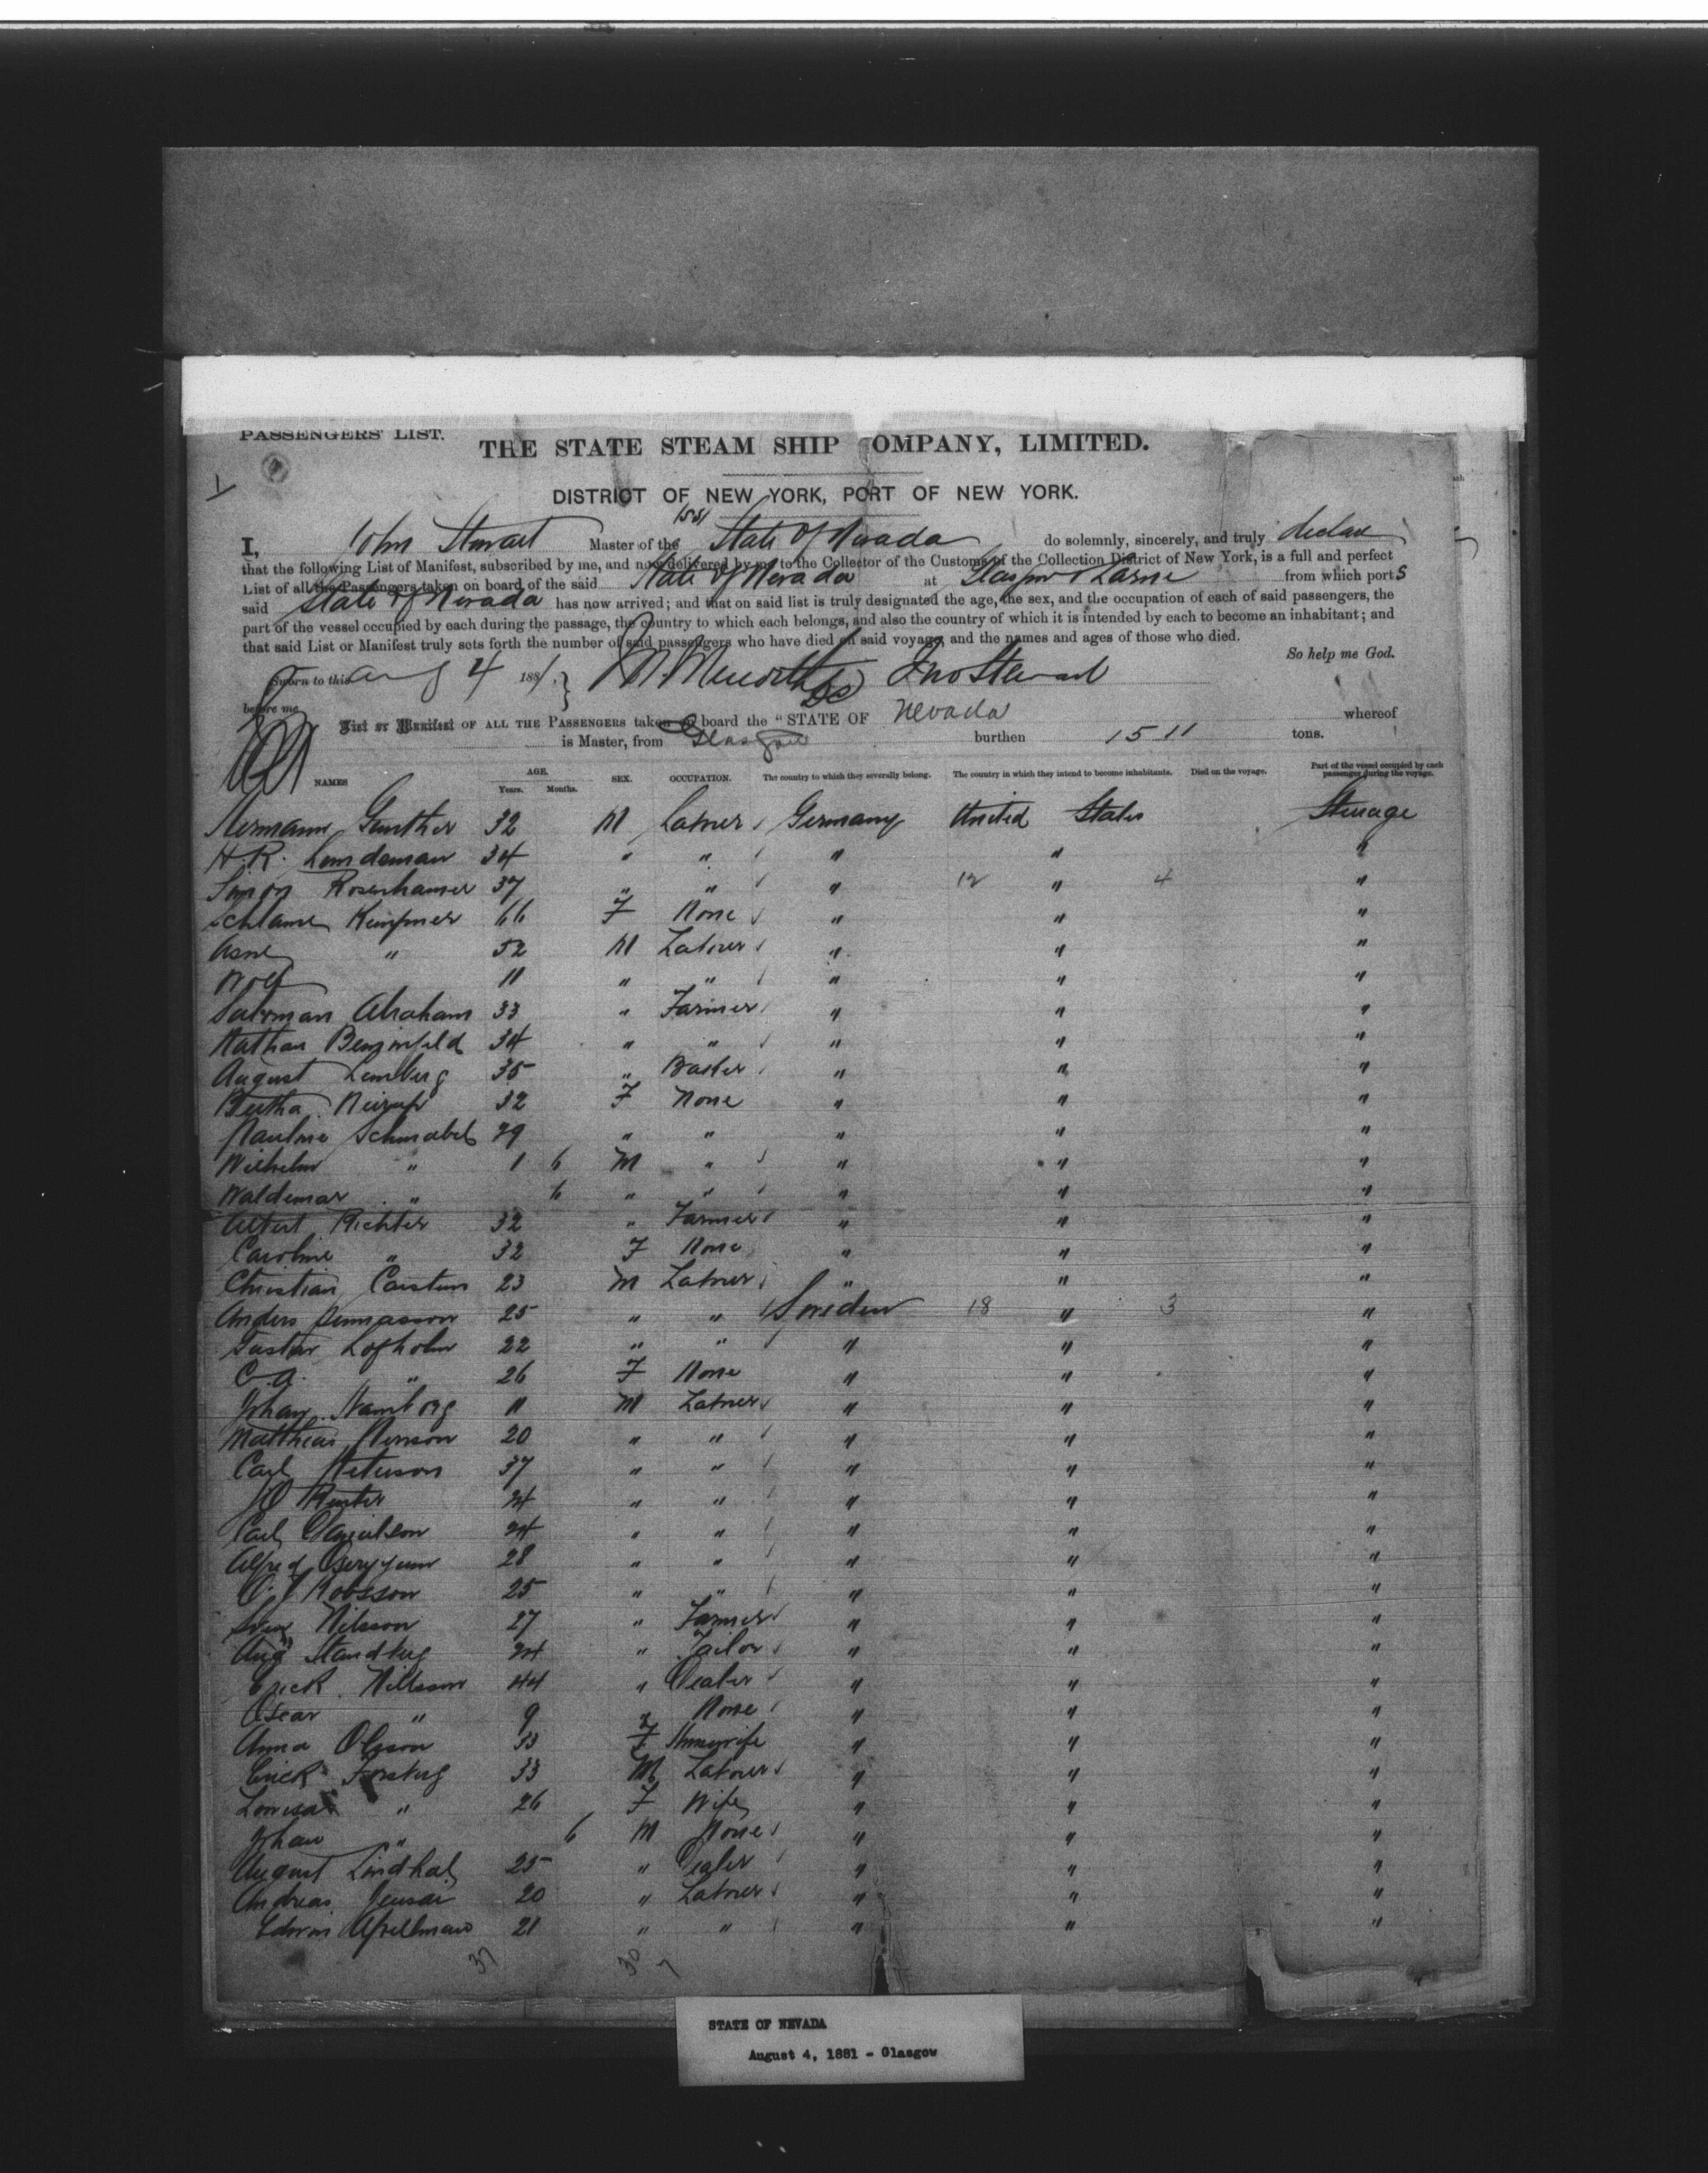 PASSENGERS' LIST.
THE STATE STEAM SHIP OMPANY, LIMITED.
DISTRICT OF NEW YORK, PORT OF NEW YORK.
I, John Stewart Master of the State of Nevada do solemnly, sincerely, and truly declare
that the following List of Manifest, subscribed by me, and now delivered by me to the Collector of the Customs of the Collection District of New York, is a full and perfect
List of all the Passengers taken on board of the said State of Nevada at Glasgow & Larne from which ports
said State of Nevada has now arrived; and that on said list is truly designated the age, the sex, and the occupation of each of said passengers, the
part of the vessel occupied by each during the passage, the country to which each belongs, and also the country of which it is intended by each to become an inhabitant; and
that said List or Manifest truly sets forth the number of said passengers who have died on said voyage, and the names and ages of those who died.
So help me God.
Sworn to this Aug 4 1881. Jno Stewart
before me
List or Manifest OF ALL THE PASSENGERS taken on board the "STATE OF Nevada whereof
is Master, from Glasgow burthen 1511 tons.
NAMES AGE. Years. Months. SEX. OCCUPATION. The country to which they severally belong. The country in which they intend to become inhabitants. Died on the voyage. Part of the vessel occupied by each passenger during the voyage.
Hermann Gunther 32 M Labourer Germany United States Steerage
H. R. Lindeman 34 " " " " "
Simon Rosenhamer 37 " " " 12 " 4 "
Schlame Kempner 66 F None " " "
" 52 M Labourer " " "
Wolf 11 " " " " "
Salomon Abraham 33 " Farmer " " "
Nathan 34 " " " " "
August Lemberg 35 " Basker " " "
Bertha 32 F None " " "
Pauline Schnabel 29 " " " " "
Wilhelm " 1 6 M " " " "
Waldemar " 6 " " " " "
Albert Richter 32 " Farmer " " "
Caroline " 32 F None " " "
Christian Carsten 23 M Labourer " " "
Anders 25 " " Sweden 18 " 3 "
Gustav Lofholm 22 " " " " "
C. A. " 26 F None " " "
Johan Hamborg 11 M Labourer " " "
Matthias 20 " " " " "
Carl Peterson 37 " " " " "
24 " " " " "
Carl Danielson 24 " " " " "
Alfred 28 " " " " "
25 " " " " "
Sven Nilsson 27 " Farmer " " "
Aug Standberg 24 " Tailor " " "
Erick Nillsson 44 " Dealer " " "
Oscar " 9 " None " " "
Anna Olsson 33 F Housewife " " "
Erick Forsberg 33 M Labourer " " "
Lovisa " 26 F Wife " " "
Johan " 6 M None " " "
August Lindhal 25 " Dealer " " "
Andreas Jensen 20 " Labourer " " "
Edwin 21 " " " " "
37 30 7
STATE OF NEVADA
August 4, 1881 - Glasgow